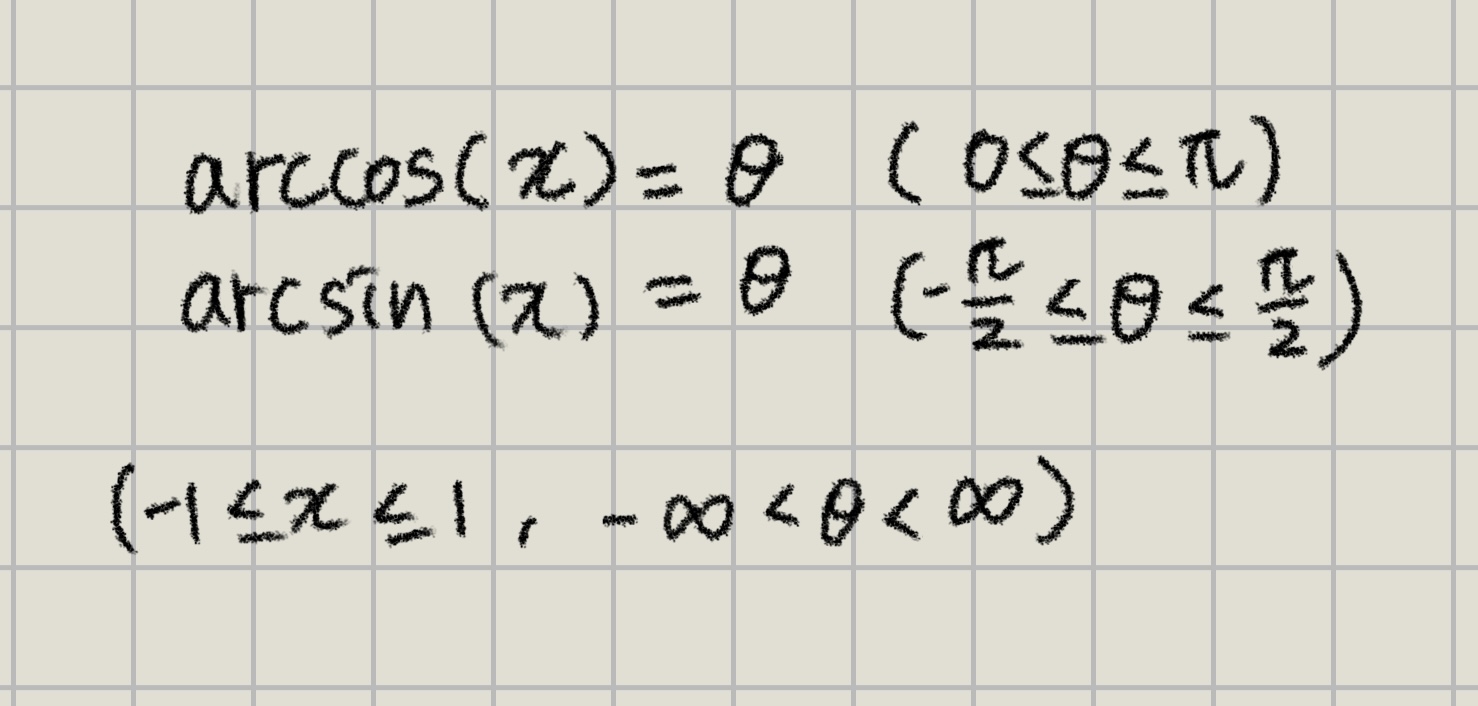 arccos(x) = θ (0≤θ≤π)
arcsin(x) = θ (-π/2 ≤ θ ≤ π/2)
(-1 ≤ x ≤ 1, -∞ < θ < ∞)